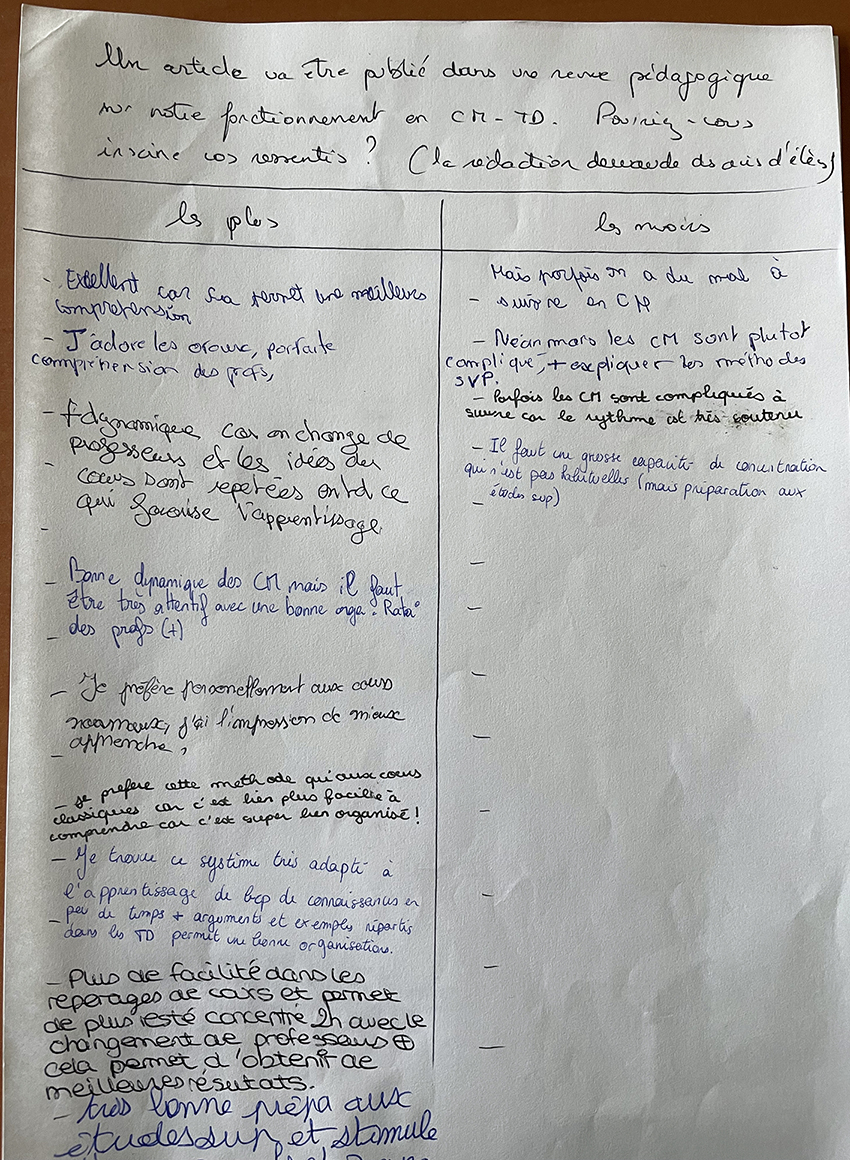 Un article va être publié dans une revue pédagogique
sur notre fonctionnement en CM-TD. Pouriez-vous
inscrire vos ressentis ? (la rédaction demande ds avis d'élèves)
les plus
- Excellent car sa permet une meilleure
compréhension
- J'adore les oraux, parfaite
compréhension des profs,
- + dynamique car on change de
professeurs et les idées du
cours sont repetées en td ce
qui favorise l'apprentissage
- Bonne dynamique des CM mais il faut
être très attentif avec une bonne orga.
des profs (+)
- Je préfère personellement aux cours
normaux, j'ai l'impression de mieux
apprendre,
- Je prefere cette methode qu'aux cours
classiques car c'est bien plus facilie à
comprendre car c'est super bien organisé !
- Je trouve ce système très adapté à
l'apprentissage de bcp de connaissances en
peu de temps + arguments et exemples répartis
dans les TD permet une bonne organisation.
- Plus de facilité dans les
reperages de cours et permet
de plus resté concentré 2h avec le
changement de professeurs ⊕
cela permet d'obtenir de
meilleures résutats.
- très bonne prépa aux
études sup et stimule
les moins
Mais parfois on a du mal à
- suivre en CM
- Néanmois les CM sont plutot
compliqué, + expliquer les méthodes
SVP.
- Parfois les CM sont compliqués à
suivre car le rythme est très soutenu
- Il faut une grosse capacité de concentration
qui n'est pas habituelles (mais préparation aux
études sup)